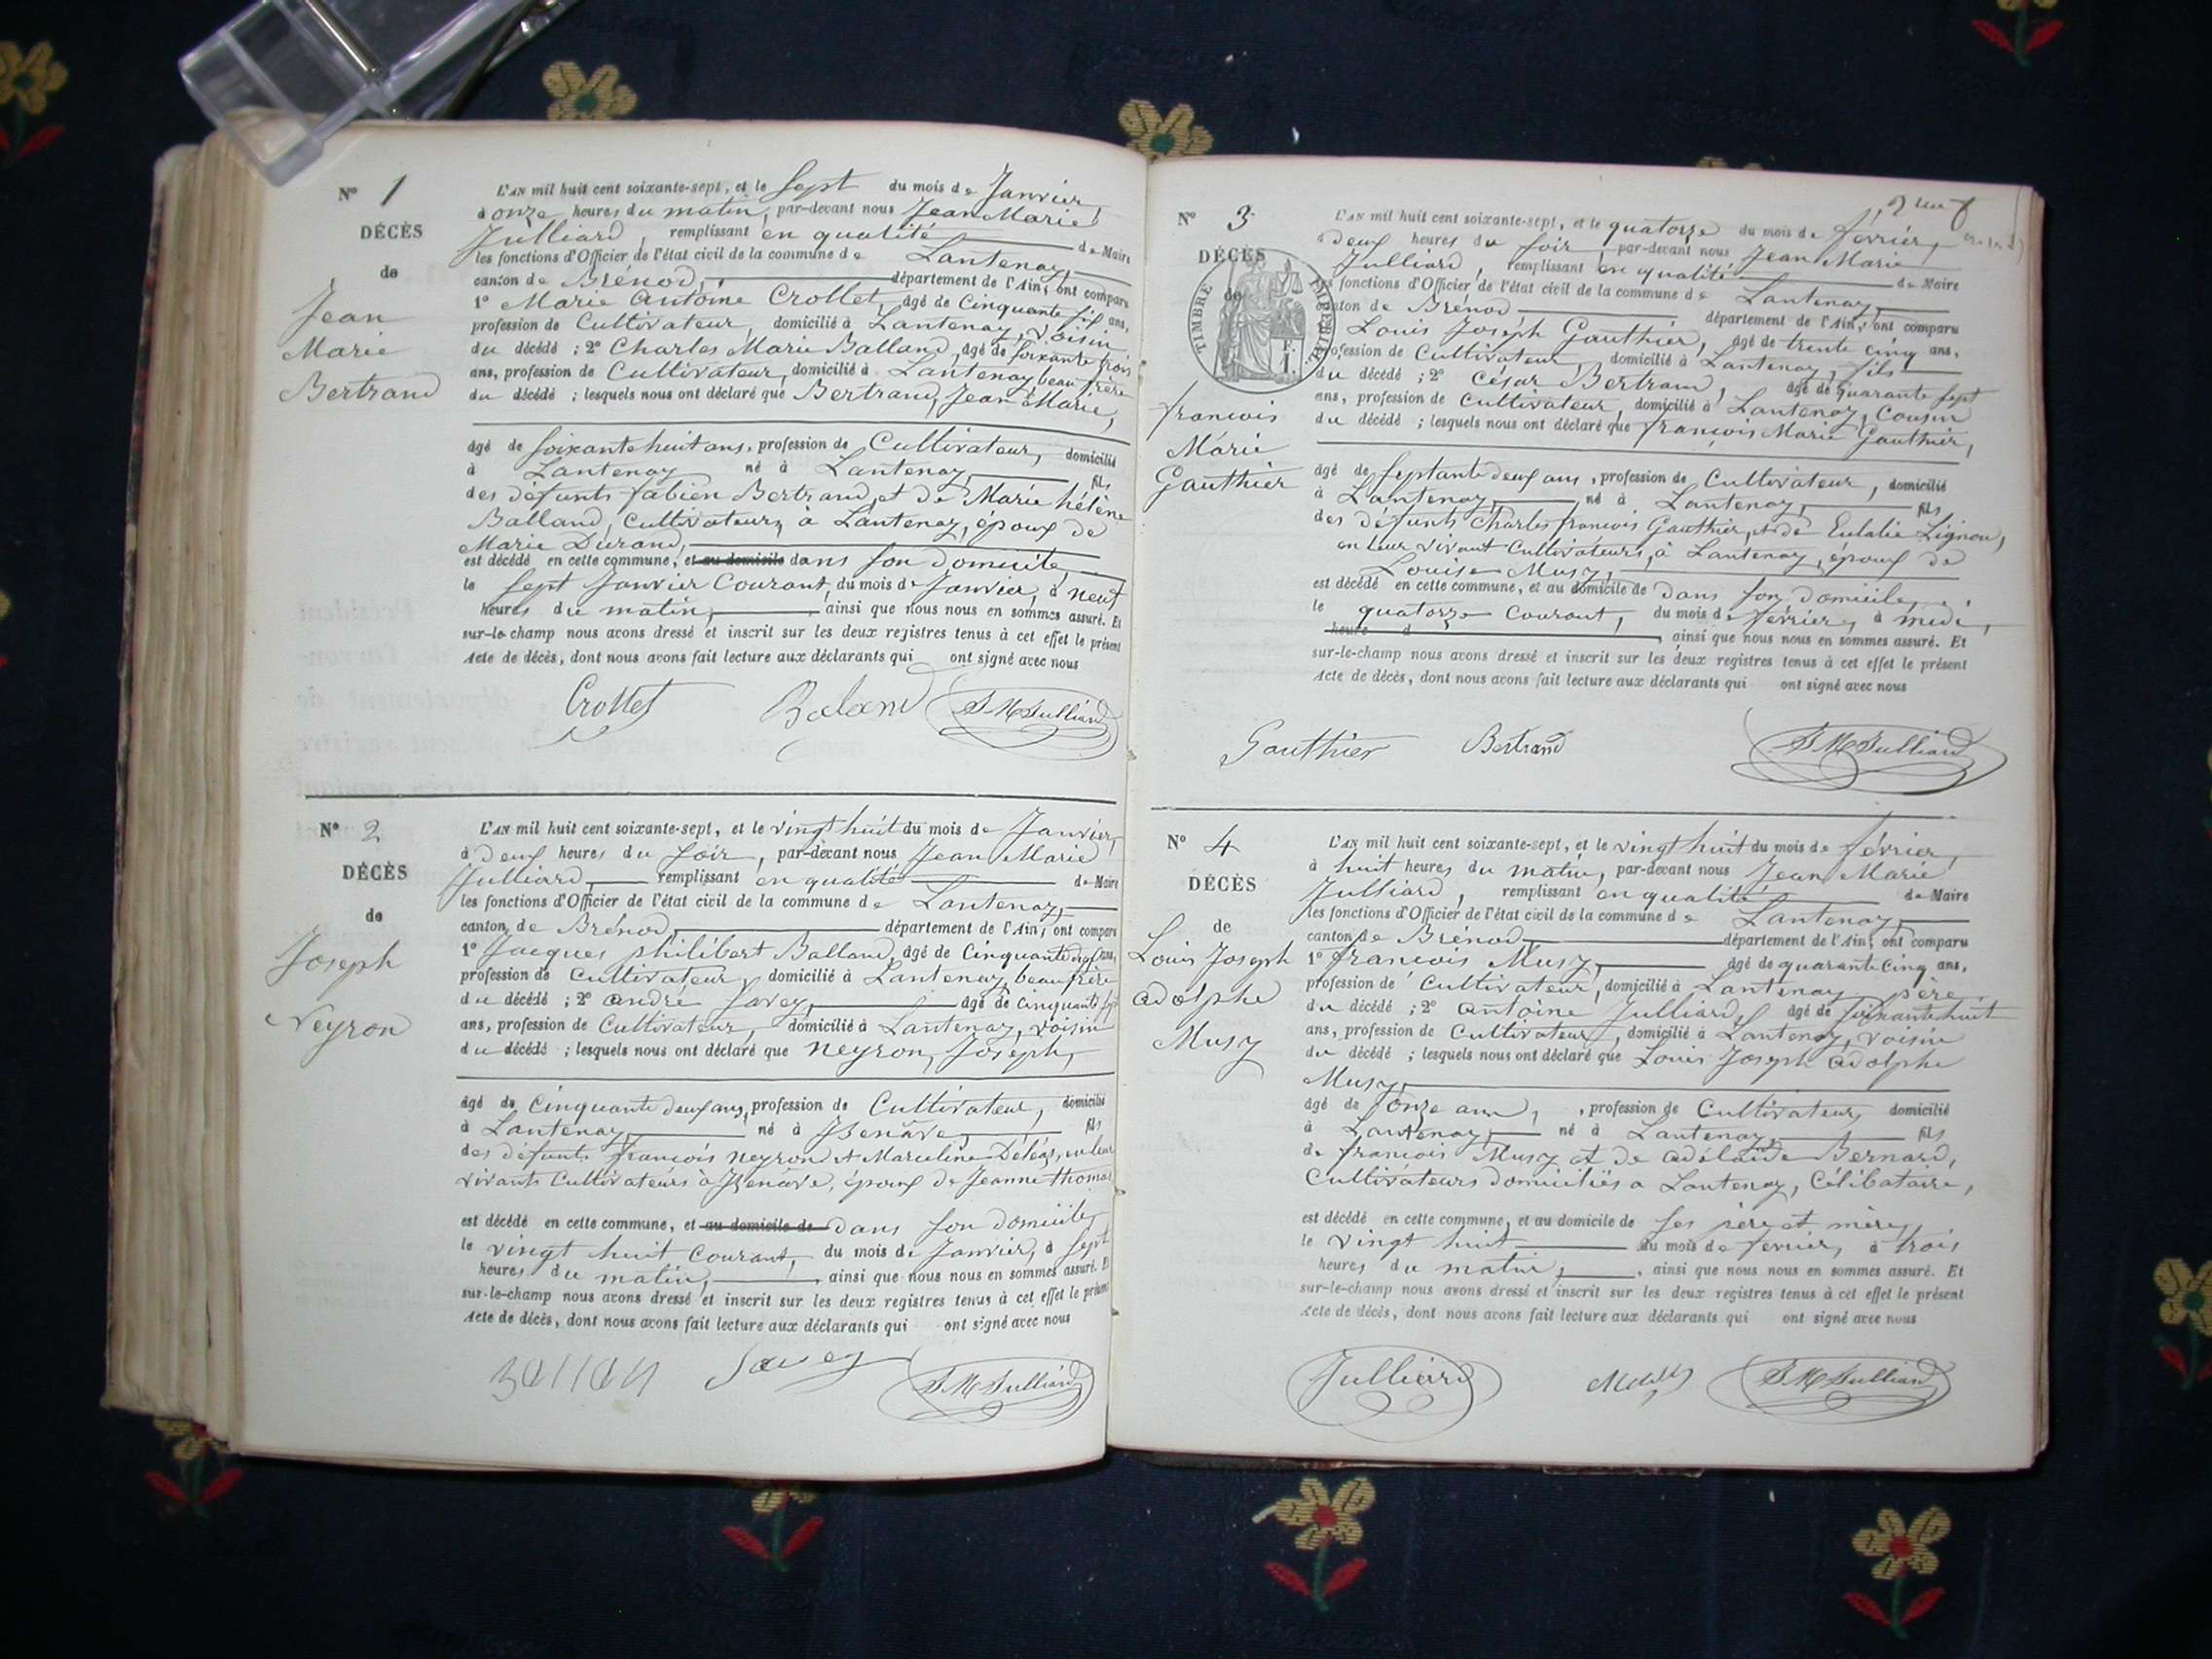 N° 1
DÉCÈS
de
Jean
Marie
Bertrand
L'AN mil huit cent soixante-sept, et le sept du mois de Janvier,
à onze heures du matin, par-devant nous Jean Marie
Julliard, remplissant en qualité de Maire
les fonctions d'Officier de l'état civil de la commune de Lantenay,
canton de Brénod, département de l'Ain, ont comparu
1° Marie Antoine Crollet, âgé de Cinquante six ans,
profession de Cultivateur, domicilié à Lantenay, voisin
du décédé ; 2° Charles Marie Balland, âgé de soixante trois
ans, profession de Cultivateur, domicilié à Lantenay, beau frère
du décédé ; lesquels nous ont déclaré que Bertrand, Jean Marie,
âgé de soixante huit ans, profession de Cultivateur, domicilié
à Lantenay né à Lantenay, fils
des défunts fabien Bertrand, et de Marie hélène
Balland, Cultivateurs, à Lantenay, époux de
Marie Durand,
est décédé en cette commune, et au domicile dans son domicile,
le sept Janvier Courant, du mois de Janvier, à neuf
heures du matin, ainsi que nous nous en sommes assuré. Et
sur-le-champ nous avons dressé et inscrit sur les deux registres tenus à cet effet le présent
Acte de décès, dont nous avons fait lecture aux déclarants qui ont signé avec nous
Crollet Baland J M Julliard
N° 2
DÉCÈS
de
Joseph
Neyron
L'AN mil huit cent soixante-sept, et le vingt huit du mois de Janvier,
à deux heures du soir, par-devant nous Jean Marie
Julliard, remplissant en qualité de Maire
les fonctions d'Officier de l'état civil de la commune de Lantenay,
canton de Brénod, département de l'Ain, ont comparu
1° Jacques philibert Balland, âgé de Cinquante ans,
profession de Cultivateur, domicilié à Lantenay, beau frère
du décédé ; 2° andré Savey, âgé de cinquante
ans, profession de Cultivateur, domicilié à Lantenay, voisin
du décédé ; lesquels nous ont déclaré que Neyron, Joseph,
âgé de Cinquante deux ans, profession de Cultivateur, domicilié
à Lantenay, né à Izenave, fils
des défunts françois neyron et Marceline Déléaz, en leur
vivants Cultivateurs à Izenave, époux de Jeanne thomas
est décédé en cette commune, et au domicile de dans son domicile,
le vingt huit courant, du mois de Janvier, à sept
heures du matin, ainsi que nous nous en sommes assuré. Et
sur-le-champ nous avons dressé et inscrit sur les deux registres tenus à cet effet le présent
Acte de décès, dont nous avons fait lecture aux déclarants qui ont signé avec nous
Savey J M Julliard
N° 3
DÉCÈS
de
TIMBRE IMPERIAL
1 F.
francois
Marie
Gauthier
L'AN mil huit cent soixante-sept, et le quatorze du mois de février,
à deux heures du soir, par-devant nous Jean Marie
Julliard, remplissant en qualité de Maire
les fonctions d'Officier de l'état civil de la commune de Lantenay,
canton de Brénod département de l'Ain, ont comparu
Louis Joseph Gauthier, âgé de trente cinq ans,
profession de Cultivateur, domicilié à Lantenay, fils
du décédé ; 2° César Bertrand, âgé de quarante sept
ans, profession de Cultivateur, domicilié à Lantenay, Cousin
du décédé ; lesquels nous ont déclaré que françois Marie Gauthier,
âgé de septante deux ans, profession de Cultivateur, domicilié
à Lantenay, né à Lantenay, fils
des défunts Charles françois Gauthier, et de Eulalie Lignon,
en leur vivant Cultivateurs, à Lantenay, époux de
Louise Musy,
est décédé en cette commune, et au domicile de dans son domicile,
le quatorze Courant, du mois de février, à midi,
heure d ainsi que nous nous en sommes assuré. Et
sur-le-champ nous avons dressé et inscrit sur les deux registres tenus à cet effet le présent
Acte de décès, dont nous avons fait lecture aux déclarants qui ont signé avec nous
Gauthier Bertrand J M Julliard
N° 4
DÉCÈS
de
Louis Joseph
adolphe
Musy
L'AN mil huit cent soixante-sept, et le vingt huit du mois de février,
à huit heures du matin, par-devant nous Jean Marie
Julliard, remplissant en qualité de Maire
les fonctions d'Officier de l'état civil de la commune de Lantenay,
canton de Brénod, département de l'Ain, ont comparu
1° françois Musy, âgé de quarante cinq ans,
profession de Cultivateur, domicilié à Lantenay père
du décédé ; 2° antoine Julliard, âgé de soixante huit
ans, profession de Cultivateur, domicilié à Lantenay, voisin
du décédé ; lesquels nous ont déclaré que Louis Joseph adolphe
Musy,
âgé de onze ans, profession de Cultivateur, domicilié
à Lantenay, né à Lantenay, fils
de françois Musy et de adélaïde Bernard,
Cultivateurs domiciliés a Lantenay, Célibataire,
est décédé en cette commune, et au domicile de ses père et mère,
le vingt huit du mois de février, à trois
heures du matin, ainsi que nous nous en sommes assuré. Et
sur-le-champ nous avons dressé et inscrit sur les deux registres tenus à cet effet le présent
Acte de décès, dont nous avons fait lecture aux déclarants qui ont signé avec nous
Julliard Musy J M Julliard